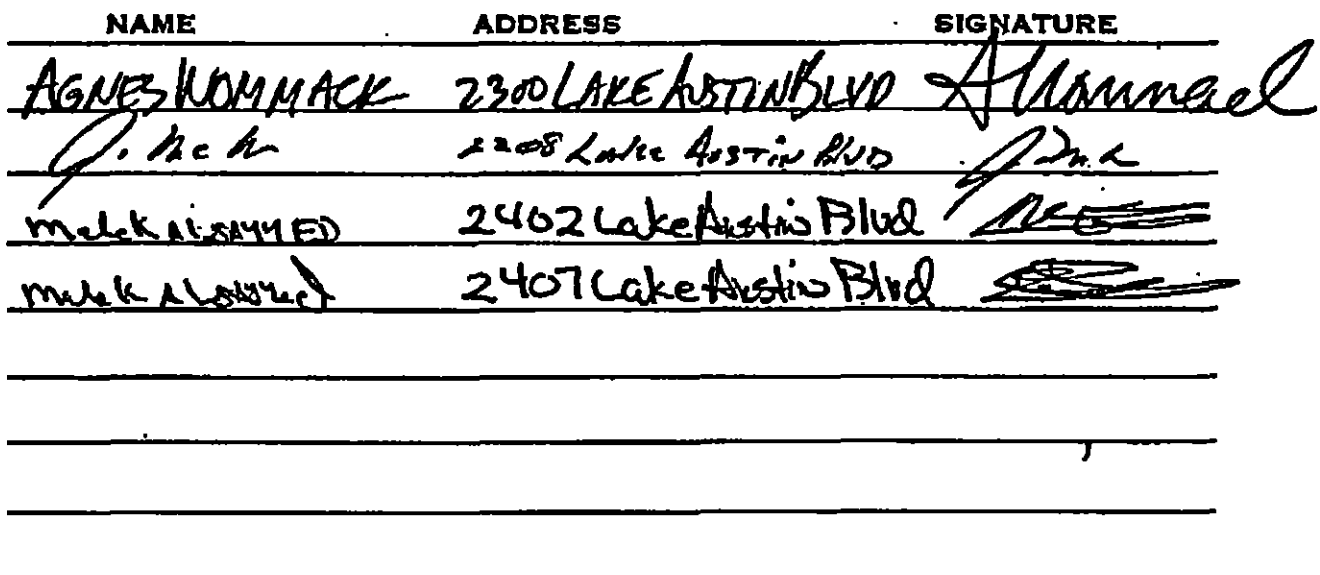 NAME ADDRESS SIGNATURE
AGNES WOMMACK 2300 LAKE AUSTIN BLVD A Wommack
J. 2208 Lake Austin Blvd J.
Melek AlSAYYED 2402 Lake Austin Blvd
Melek Alsayyed 2407 Lake Austin Blvd